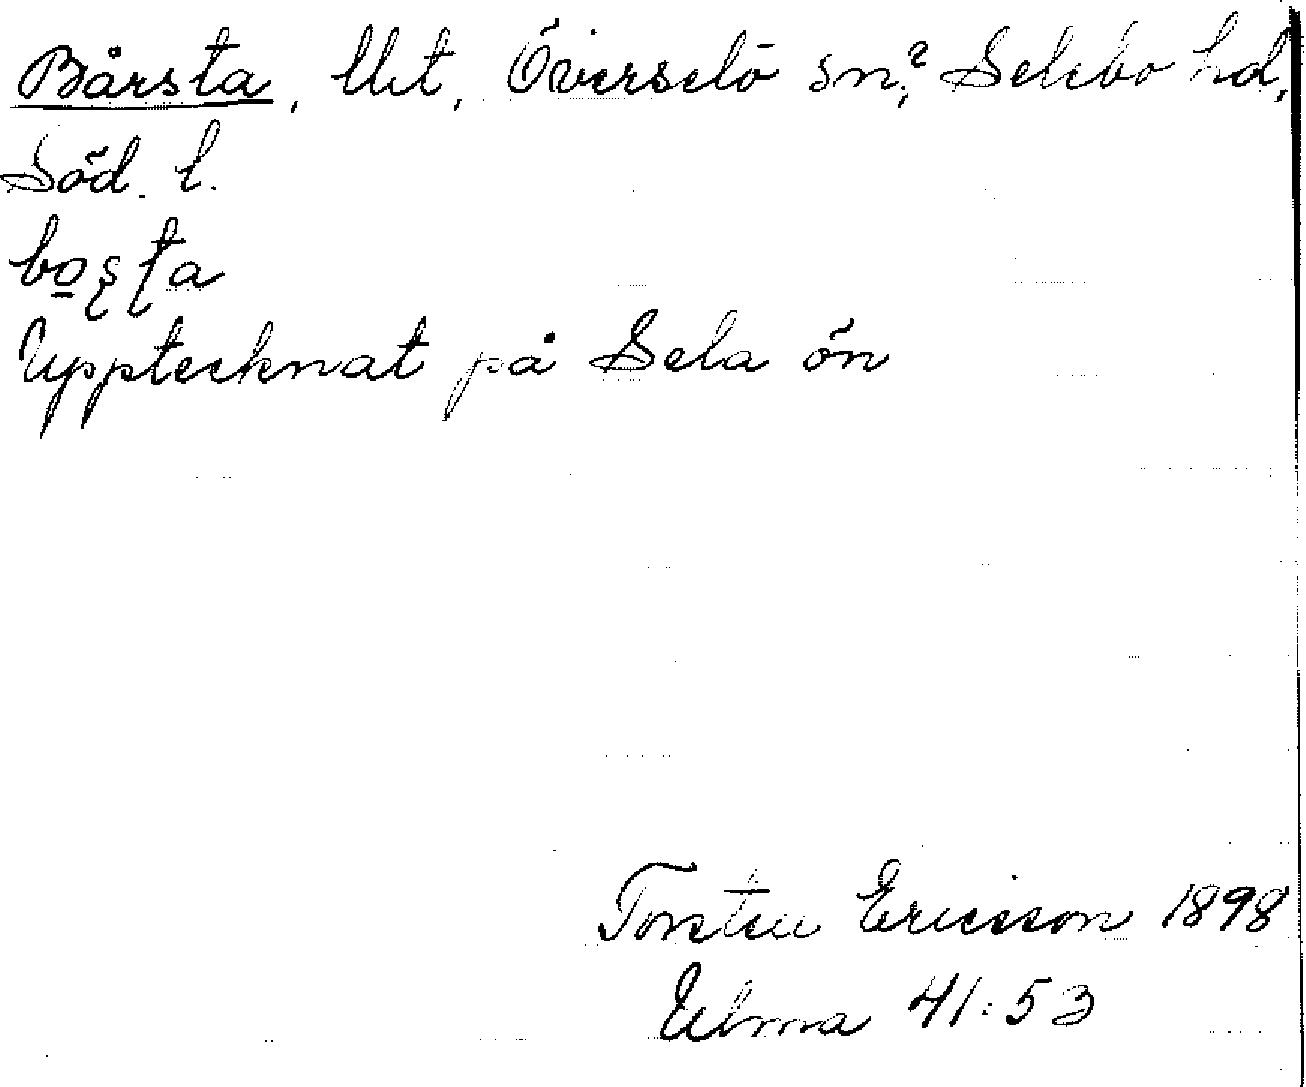 Bårsta, Ut, Överselö sn?, Selebo hd,
Söd. l.
bo̲ʂʈa
Upptecknat på Sela ön
Torsten Ericsson 1898
Ulma 41:53